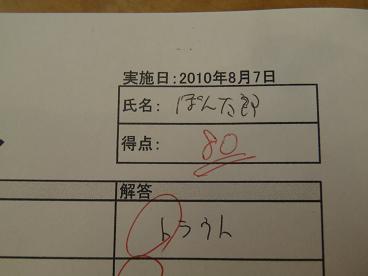 実施日:2010年8月7日
氏名: ぽん太郎
得点: 80
解答
トラウト